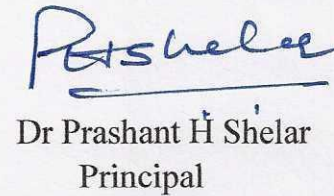 PHShelar
Dr Prashant H Shelar
Principal